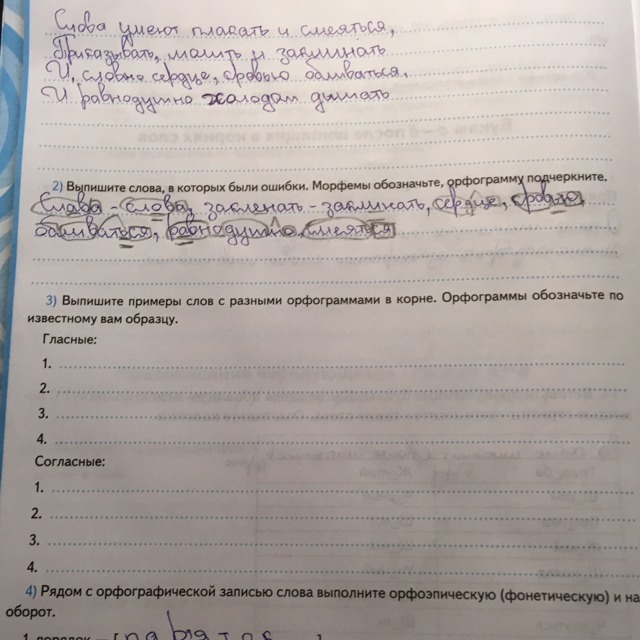 Слова умеют плакать и смеяться,
Приказывать, молить и заклинать
И, словно сердце, кровью обливаться.
И равнодушно холодом дышать
2) Выпишите слова, в которых были ошибки. Морфемы обозначьте, орфограмму подчеркните.
слова, закленать - заклинать, сердце, кровью,
равнодушно, смеяться
3) Выпишите примеры слов с разными орфограммами в корне. Орфограммы обозначьте по
известному вам образцу.
Гласные:
1.
2.
3.
4.
Согласные:
1.
2.
3.
4.
4) Рядом с орфографической записью слова выполните орфоэпическую (фонетическую) и на
оборот.
1. порядок – [